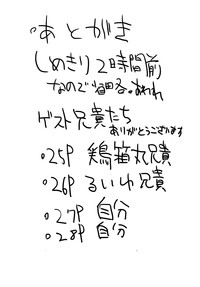 あとがき
しめきり2時間前
なので省略。あわれ
ゲスト兄貴たち
ありがとうございます
○25P 鶏箱丸兄貴
○26P るいね兄貴
○27P 自分
○28P 自分